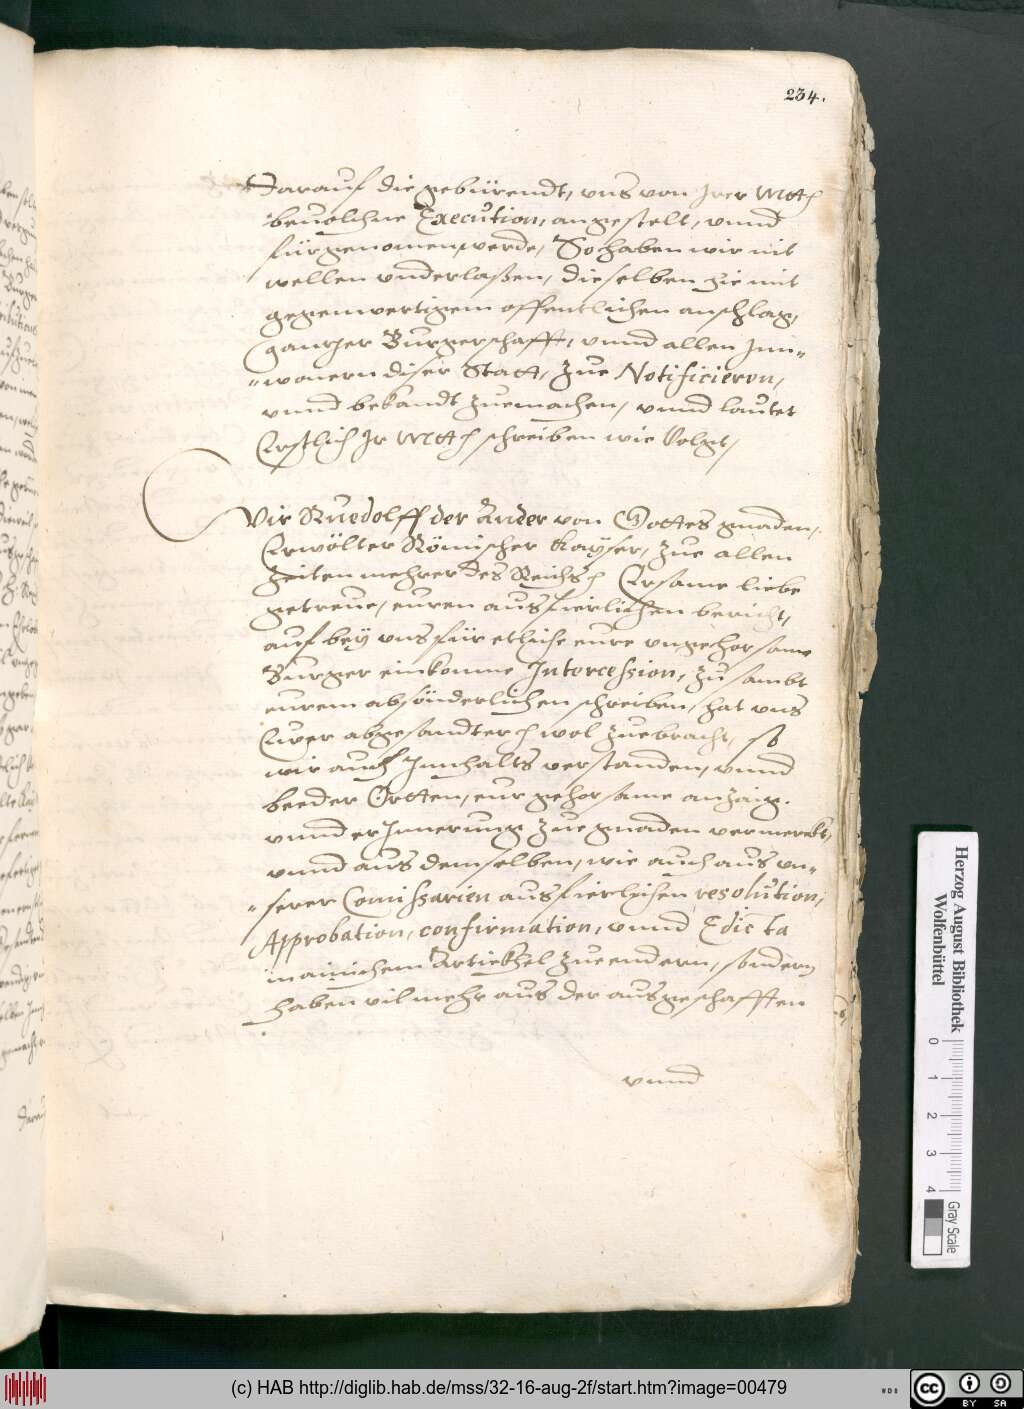 234.
Darauf die gebürendt, vns von Irer Mtt
beuolchne Execution, angestelt, vnnd
fürgenomen werde, So haben wir nit
wellen vnderlaßen, dieselben hie mit
gegenwertigem offentlichen anschlag,
gantzer Burgerschafft, vnnd allen Inn„
„wonern diser Statt, zue Notificieren,
vnnd bekandt zuemachen, vnnd lautet
Erstlich Ir Mtt schreiben wie Volgt,
Wir Ruedolff der Ander von Gottes gnaden,
Erwölter Römischer Kayser, zue allen
Zeiten mehrer des Reichs Ersame liebe
getreue, euren ausfierlichen bericht,
auf bey vns für etliche eure vngehorsame
Burger einkomne Intercession, zu sambt
eurem absönderlichen schreiben, hat vns
Euer abgesandter wol zuebracht, so
wir auch Innhalts verstanden, vnnd
beeder Ortten, eur gehorsame anzaig.
vnnd erInnerung zue gnaden vermerckt,
vnnd aus demselben, wie auch aus vn„
„serer Comissarien ausfierlichen resolution,
Approbation, confirmation, vnnd Edicta
in ainichem Artickhel zueendern, sondern
haben vil mehr aus der ausgeschafften
vnnd
Herzog August Bibliothek
Wolfenbüttel
0 1 2 3 4
Gray Scale
(c) HAB http://diglib.hab.de/mss/32-16-aug-2f/start.htm?image=00479
WDB
cc BY SA